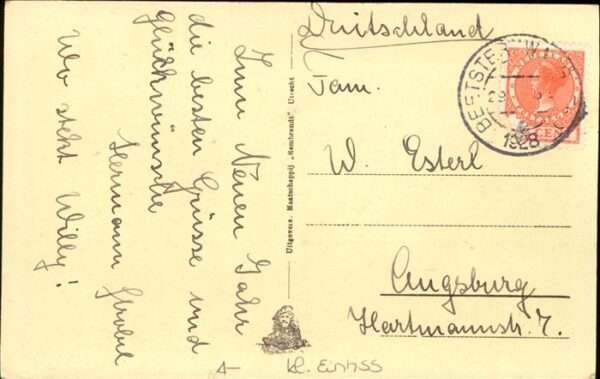 Zum Neuen Jahr
die besten Grüsse und
Glückwünsche
Hermann Grobel
Wo steht Willy!
Uitgevers. Maatschappij „Rembrandt" Utrecht
Duitschland
Fam.
W. Esterl
Augsburg
Hartmannstr. 7.
BEETSTERZWAAG
1928
CENT
kl. Einriss